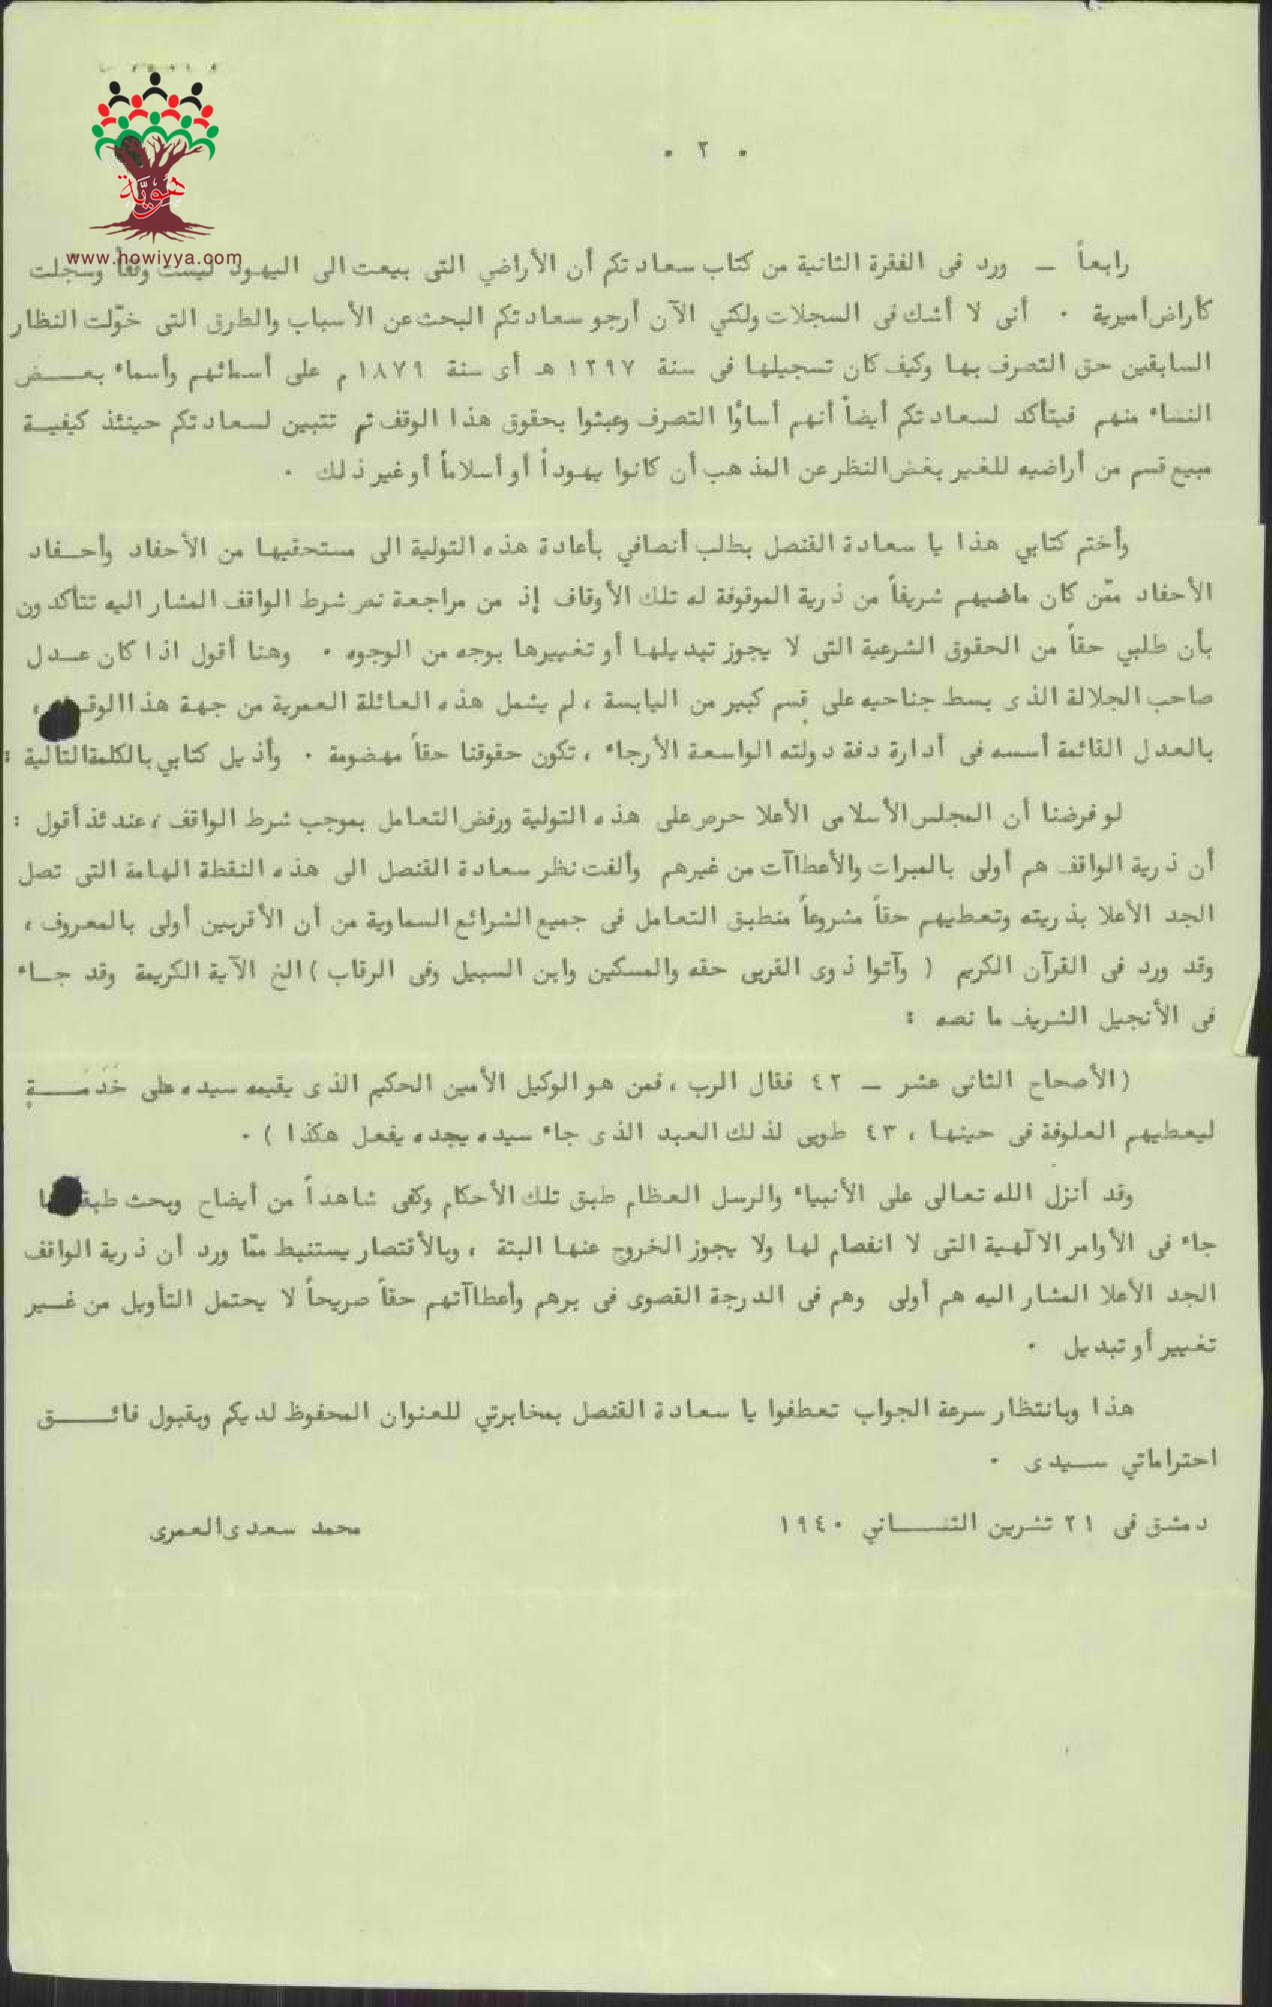 هوية
www.howiyya.com
٠ ٢ ٠
رابعاً ــ ورد فى الفقرة الثانية من كتاب سعادتكم أن الأراضي التى بيعت الى اليهود ليست وقفاً وسجلت
كأراض أميرية ٠ أنى لا أشك فى السجلات ولكني الآن أرجو سعادتكم البحث عن الأسباب والطرق التى خوّلت النظار
السابقين حق التصرف بها وكيف كان تسجيلها فى سنة ١٢٩٧ هـ أى سنة ١٨٧٩ م على أسمائهم وأسماء بعــض
النساء منهم فيتأكد لسعادتكم أيضاً أنهم أساؤا التصرف وعبثوا بحقوق هذا الوقف ثم تتبين لسعادتكم حينئذ كيفيــة
مبيع قسم من أراضيه للغير بغض النظر عن المذهب أن كانوا يهوداً أو أسلاماً أو غير ذلك ٠
وأختم كتابي هذا يا سعادة القنصل بطلب أنصافي بأعادة هذه التولية الى مستحقيها من الأحفاد وأحــفاد
الأحفاد ممّن كان ماضيهم شريفاً من ذرية الموقوفة له تلك الأوقاف إذ من مراجعة نص شرط الواقف المشار اليه تتأكدون
بأن طلبي حقاً من الحقوق الشرعية التى لا يجوز تبديلها أو تغييرها بوجه من الوجوه ٠ وهنا أقول اذا كان عــدل
صاحب الجلالة الذى بسط جناحيه على قسم كبير من اليابسة ، لم يشمل هذه العائلة العمرية من جهة هذا الوقــف ،
بالعدل القائمة أسسه فى أدارة دفة دولته الواسعة الأرجاء ، تكون حقوقنا حقاً مهضومة ٠ وأذيل كتابي بالكلمة التالية :
لو فرضنا أن المجلس الأسلامى الأعلا حرص على هذه التولية ورفض التعامل بموجب شرط الواقف ، عندئذ أقول :
أن ذرية الواقف هم أولى بالمبرات والأعطاآت من غيرهم وألفت نظر سعادة القنصل الى هذه النقطة الهامة التى تصل
الجد الأعلا بذريته وتعطيهم حقاً مشروعاً منطبق التعامل فى جميع الشرائع السماوية من أن الأقربين أولى بالمعروف ،
وقد ورد فى القرآن الكريم ( وآتوا ذوى القربى حقه والمسكين وابن السبيل وفى الرقاب ) الخ الآية الكريمة وقد جــاء
فى الأنجيل الشريف ما نصه :
( الأصحاح الثانى عشر ــ ٤٢ فقال الرب ، فمن هو الوكيل الأمين الحكيم الذى يقيمه سيده على خَدَمَــةٍ
ليعطيهم العلوفة فى حينها ، ٤٣ طوبى لذلك العبد الذى جاء سيده يجده يفعل هكذا ) ٠
وقد أنزل الله تعالى على الأنبياء والرسل العظام طبق تلك الأحكام وكفى شاهداً من أيضاح وبحث
جاء فى الأوامر الالٓهية التى لا انفصام لها ولا يجوز الخروج عنها البتة ، وبالأقتصار يستنبط ممّا ورد أن ذرية الواقف
الجد الأعلا المشار اليه هم أولى وهم فى الدرجة القصوى فى برهم وأعطاآتهم حقاً صريحاً لا يحتمل التأويل من غــير
تغيير أو تبديل ٠
هذا وبانتظار سرعة الجواب تعطفوا يا سعادة القنصل بمخابرتي للعنوان المحفوظ لديكم وبقبول فائــق
احتراماتي ســيدى ٠
دمشق فى ٢١ تشرين الثــاني ١٩٤٠ محمد سعدى العمرى